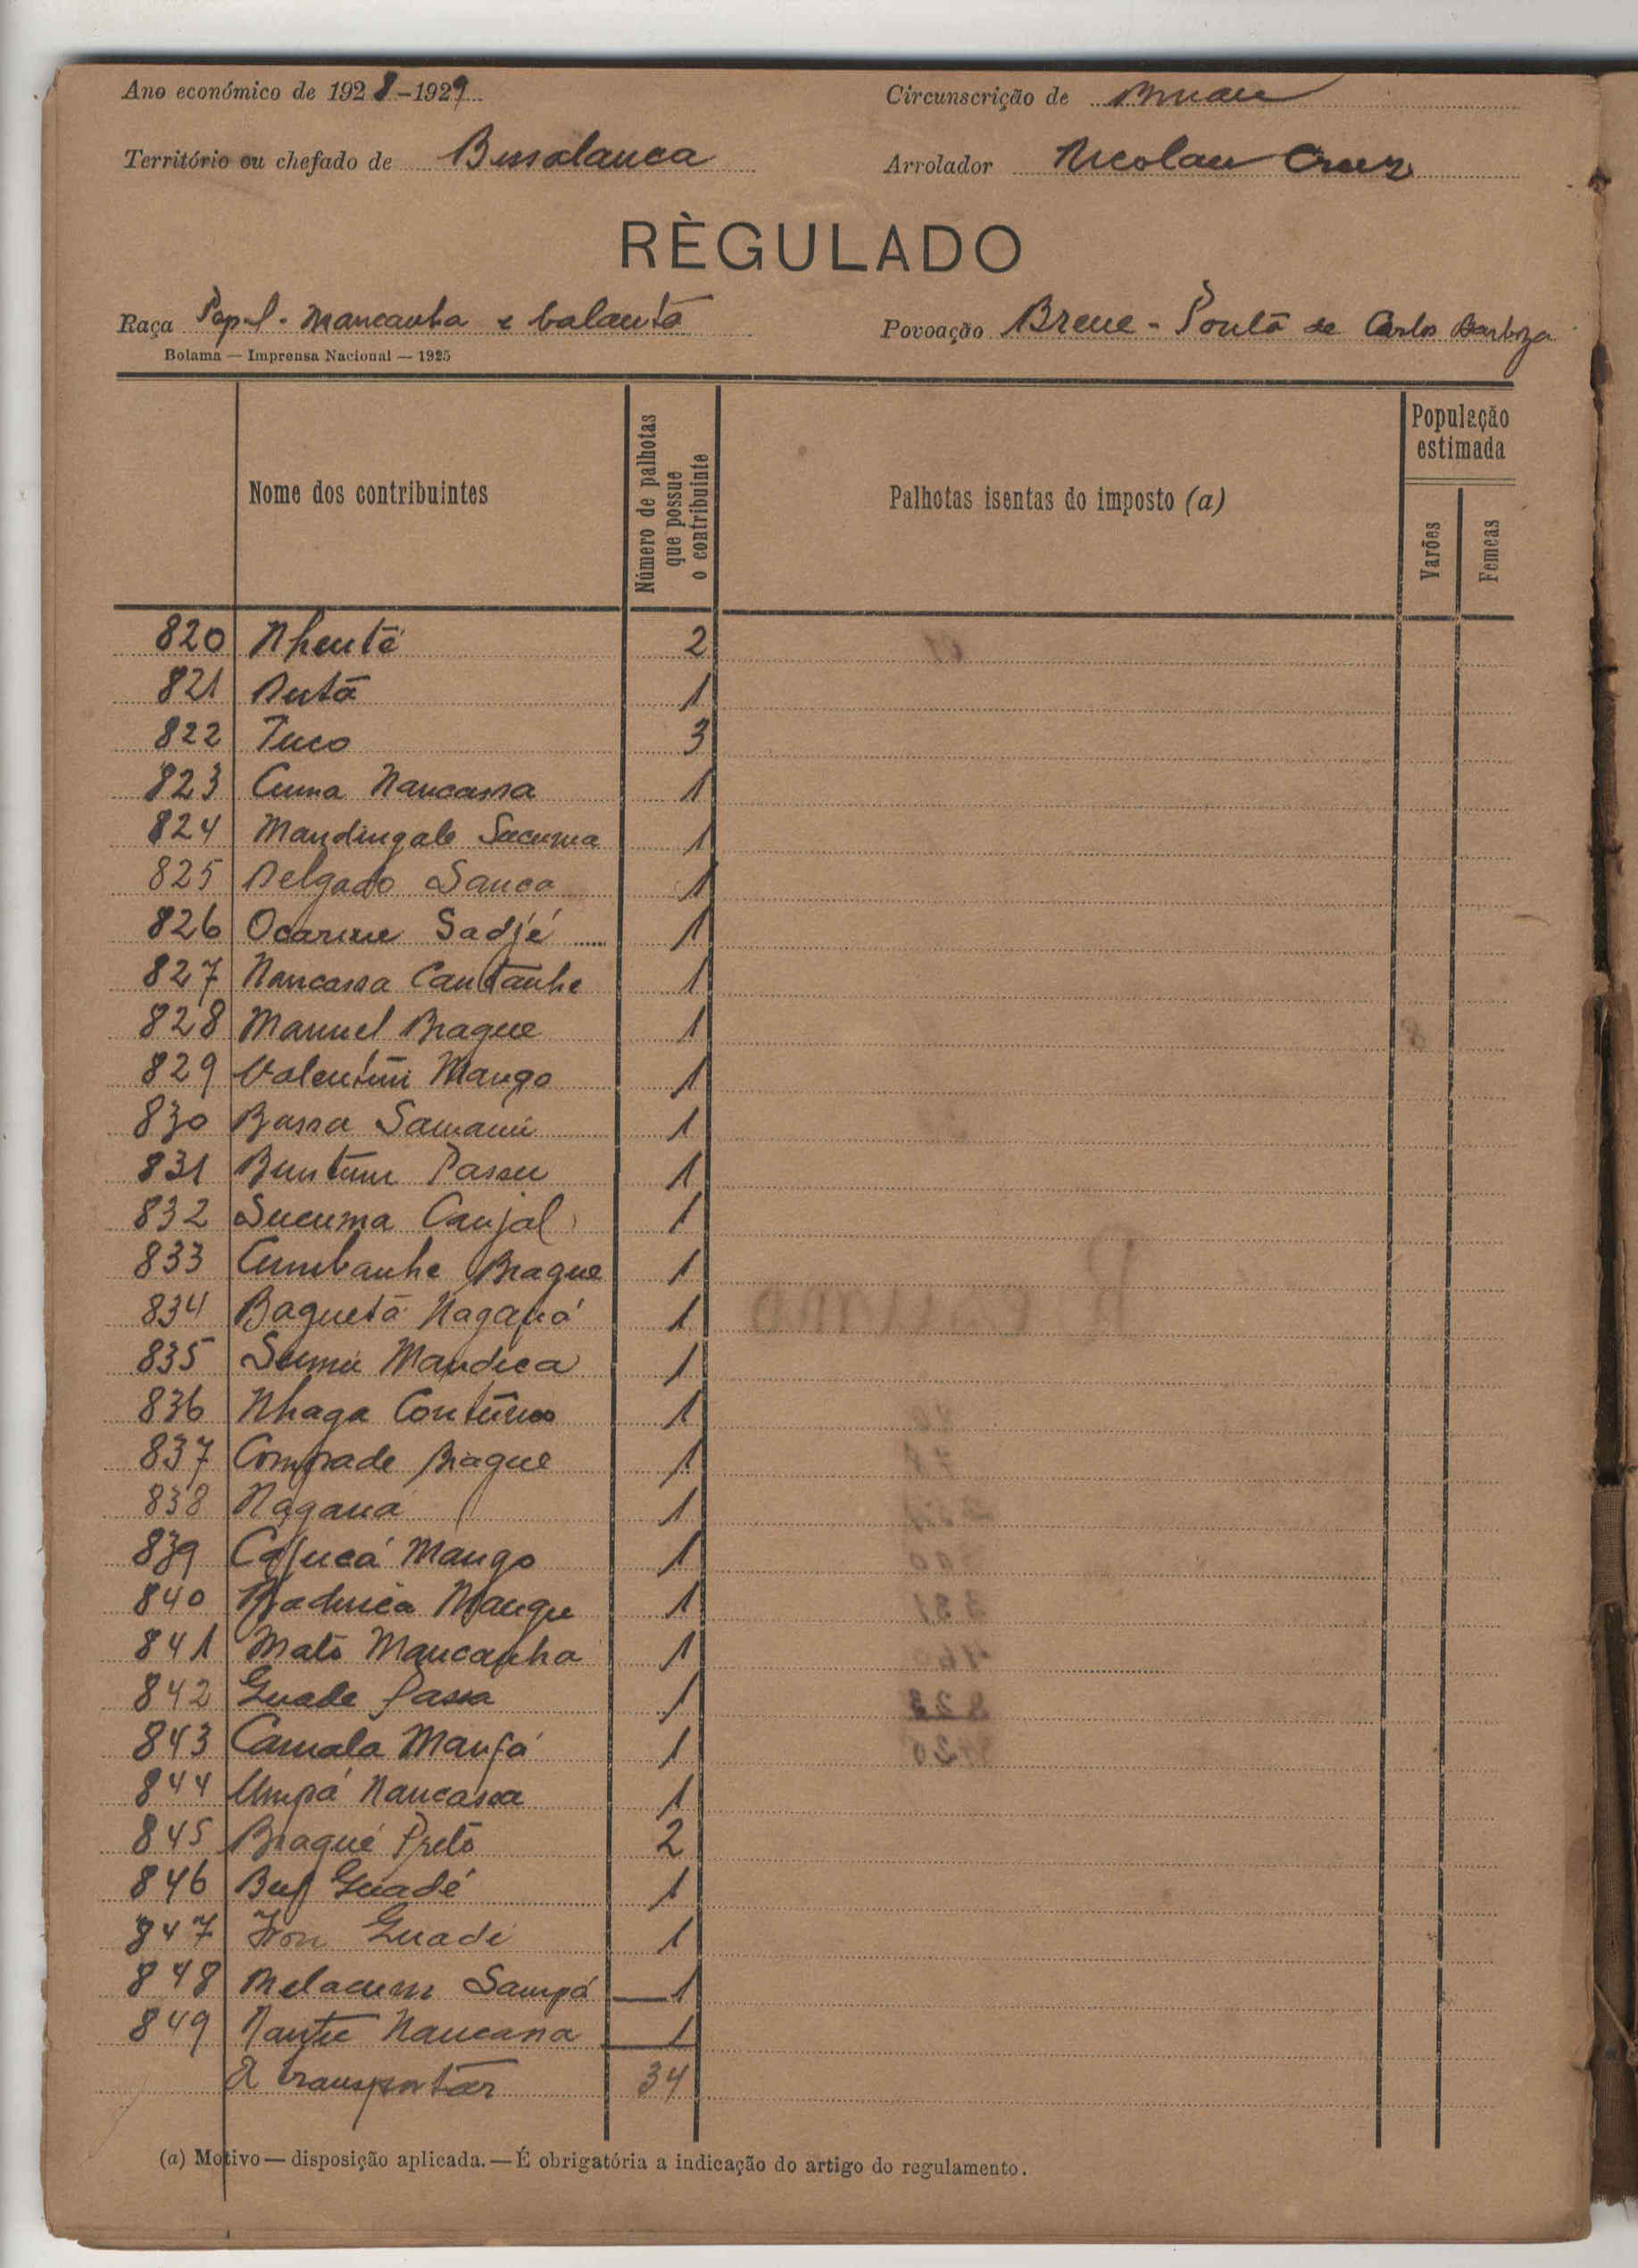 Ano económico de 1928-1929 Circunscrição de Bissau
Território ou chefado de Bissalanca Arrolador Nicolau Cruz
RÈGULADO
Raça Papel - Mancanha e balanta Povoação Brene - Ponta de Carlos Barboza
Bolama — Imprensa Nacional — 1925
Nome dos contribuintes
Número de palhotas que possue o contribuinte
Palhotas isentas do imposto (a)
População estimada
Varões
Femeas
820 Nhentê 2
821 1
822 Tuco 3
823 Cuma Nancassa 1
824 Mandingale Sucuma 1
825 Delgado Sanca 1
826 Ocarine Sadjé 1
827 Nancassa Cantanhe 1
828 Manuel Brague 1
829 Valentim Mango 1
830 Bassa 1
831 1
832 Sucuma Canjal 1
833 Cumbanhe Brague 1
834 Baguetá 1
835 Mandica 1
836 Nhaga 1
837 Comprade Biague 1
838 Nagana 1
839 Mango 1
840 1
841 Mato Mancanha 1
842 Guade Passa 1
843 Camala 1
844 Umpá Nancassa 1
845 Biagué Preto 2
846 Guadé 1
847 Guade 1
848 Sampá 1
849 Nancassa 1
A transportar 34
(a) Motivo — disposição aplicada. — É obrigatória a indicação do artigo do regulamento.